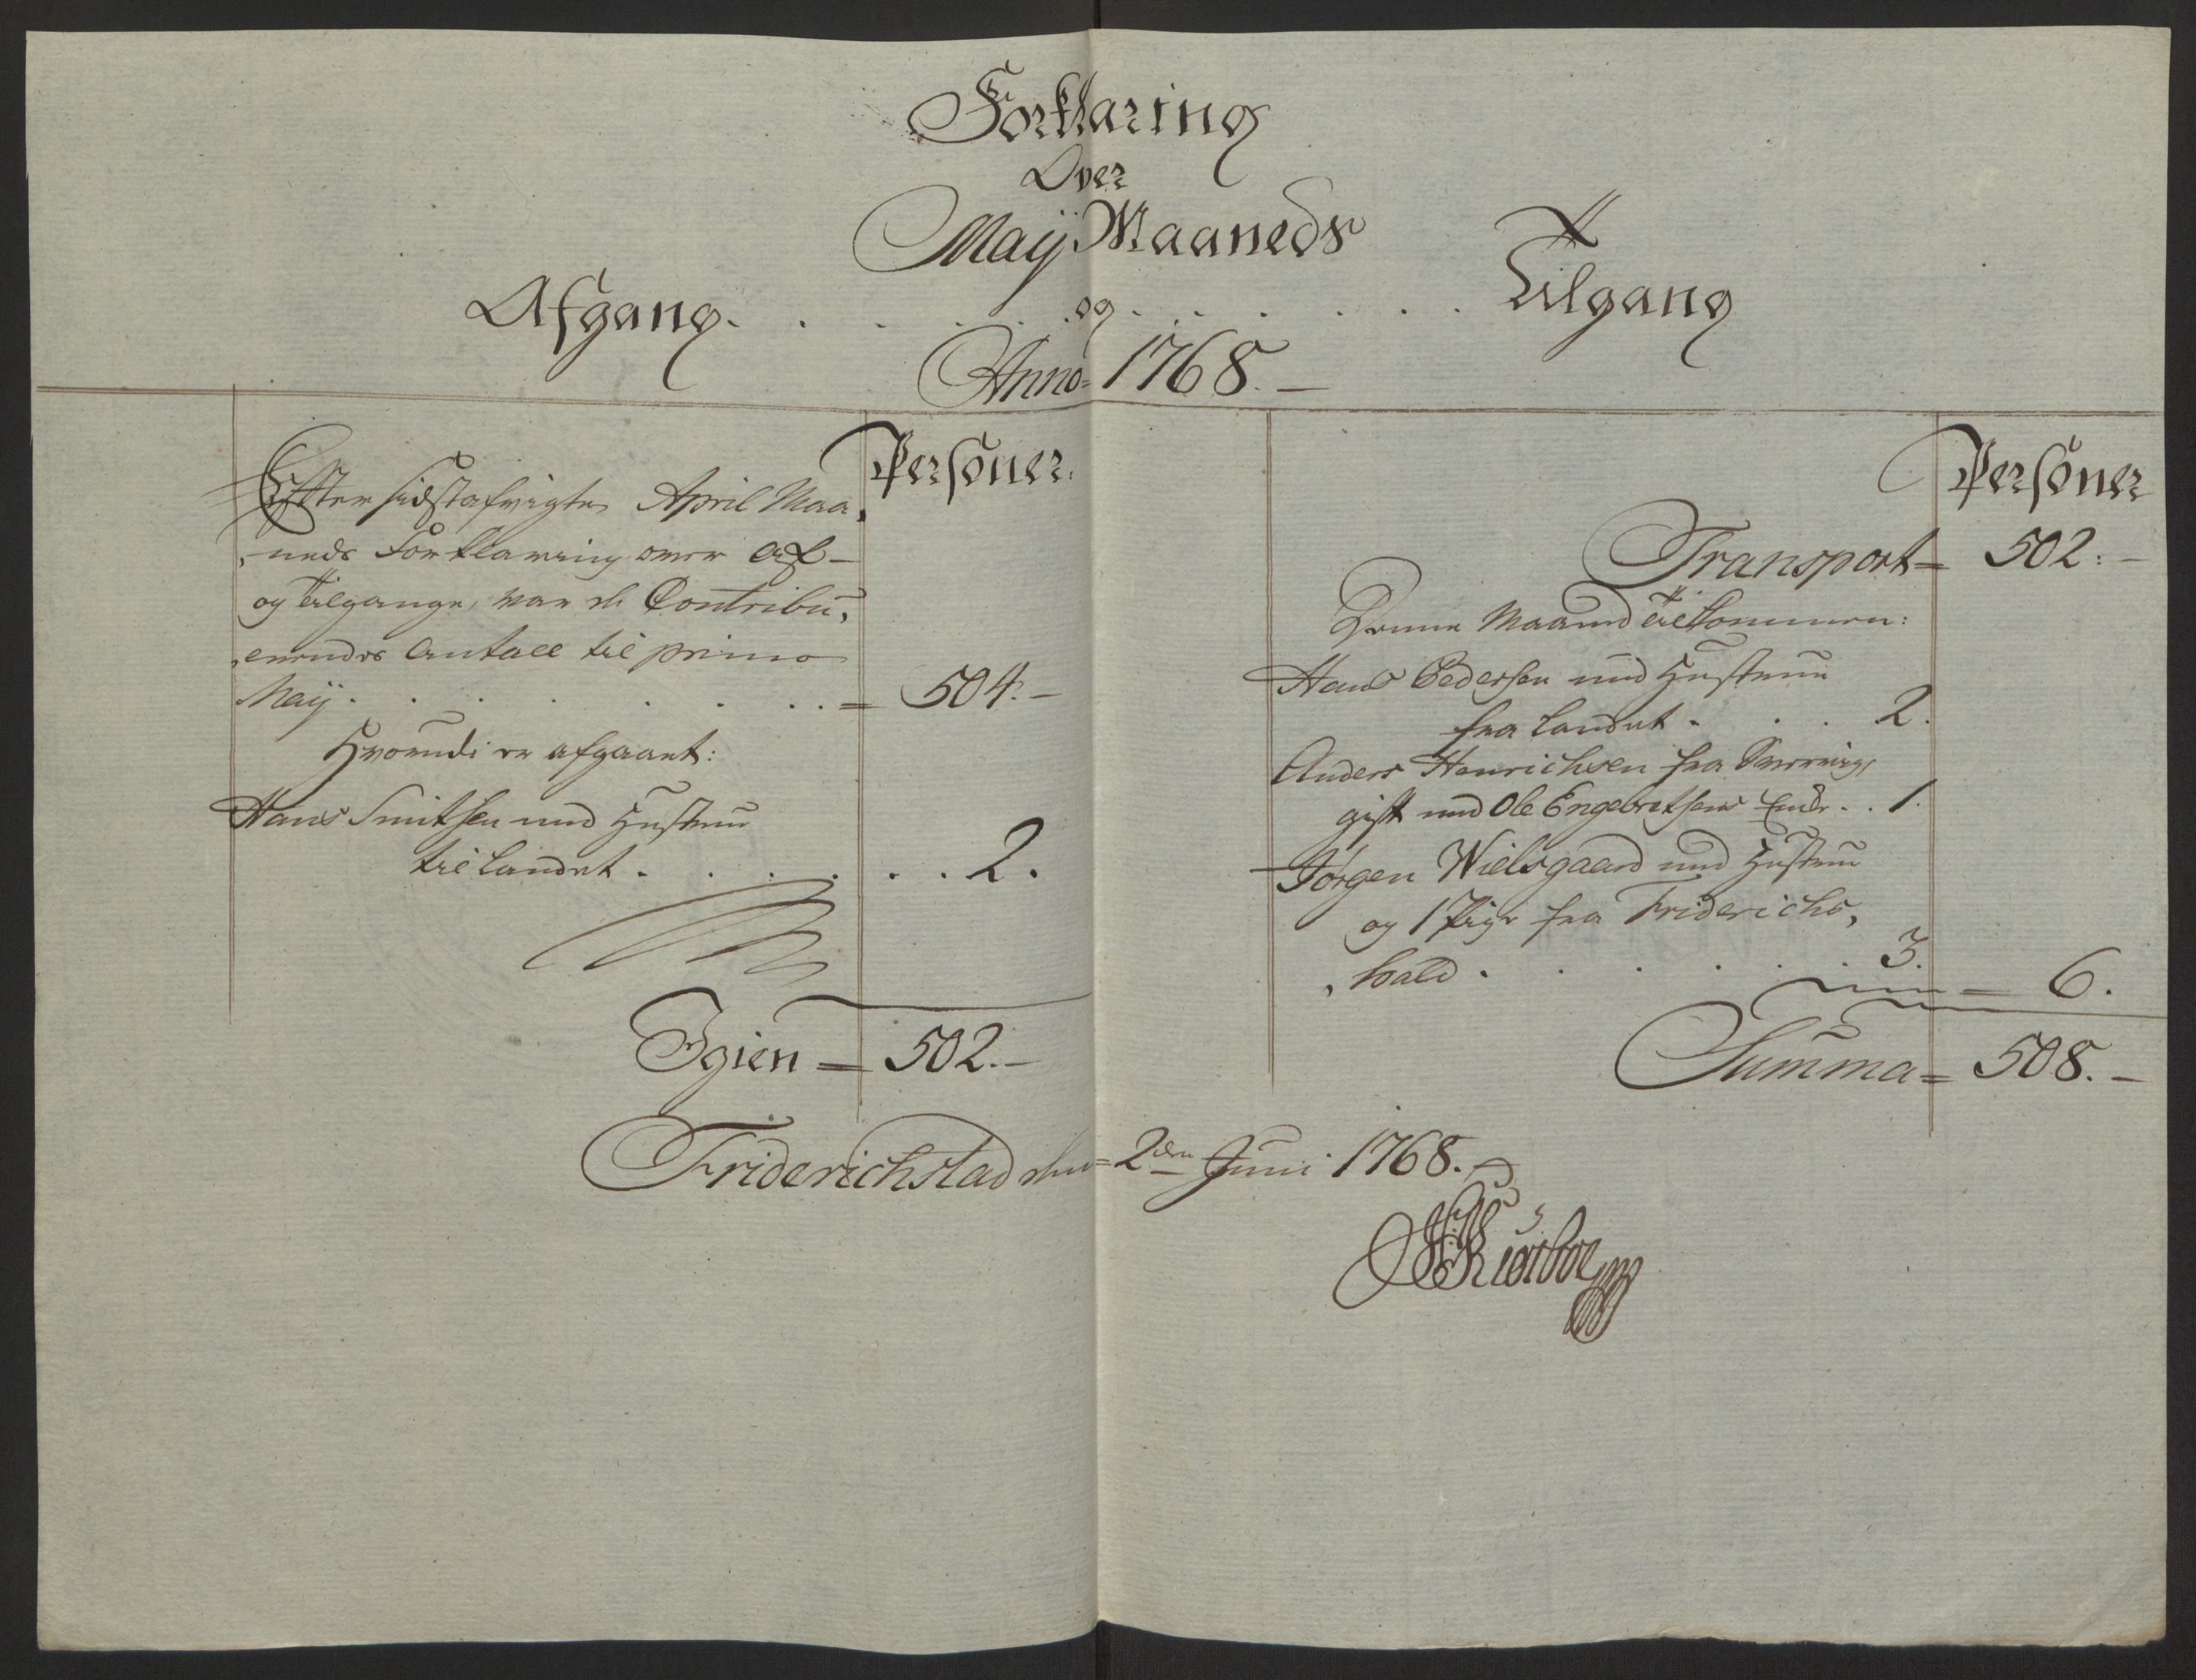 Forklaring
Over
Maÿ Maaneds
Afgang . . . . . og . . . . . Tilgang
Anno 1768. –
Personer.
Efter sidstafvigte April Maa,
,neds Forklaring over Af-
og Tilgange, var de Contribu,
,erendes Antall til primo
Maÿ . . . . . . . = 504. –
Hvorudi er afgaaet:
Hans Smitsen med Hustrue
til Landet . . . . . . 2.
Igien = 502. –
Personer
Transport = 502: –
Denne Maaned tilkommen:
Hans Pedersen med Hustrue
fra Landet . . . 2.
Anders Henrichsen fra
gift med Ole Engebretsens . . 1.
Jörgen Wielsgaard med Hustrue
og 1 Pige fra Friderichs,
,hald . . . . . . 3.
= 6.
Summa = 508. –
Friderichstad den 2den Junii 1768.